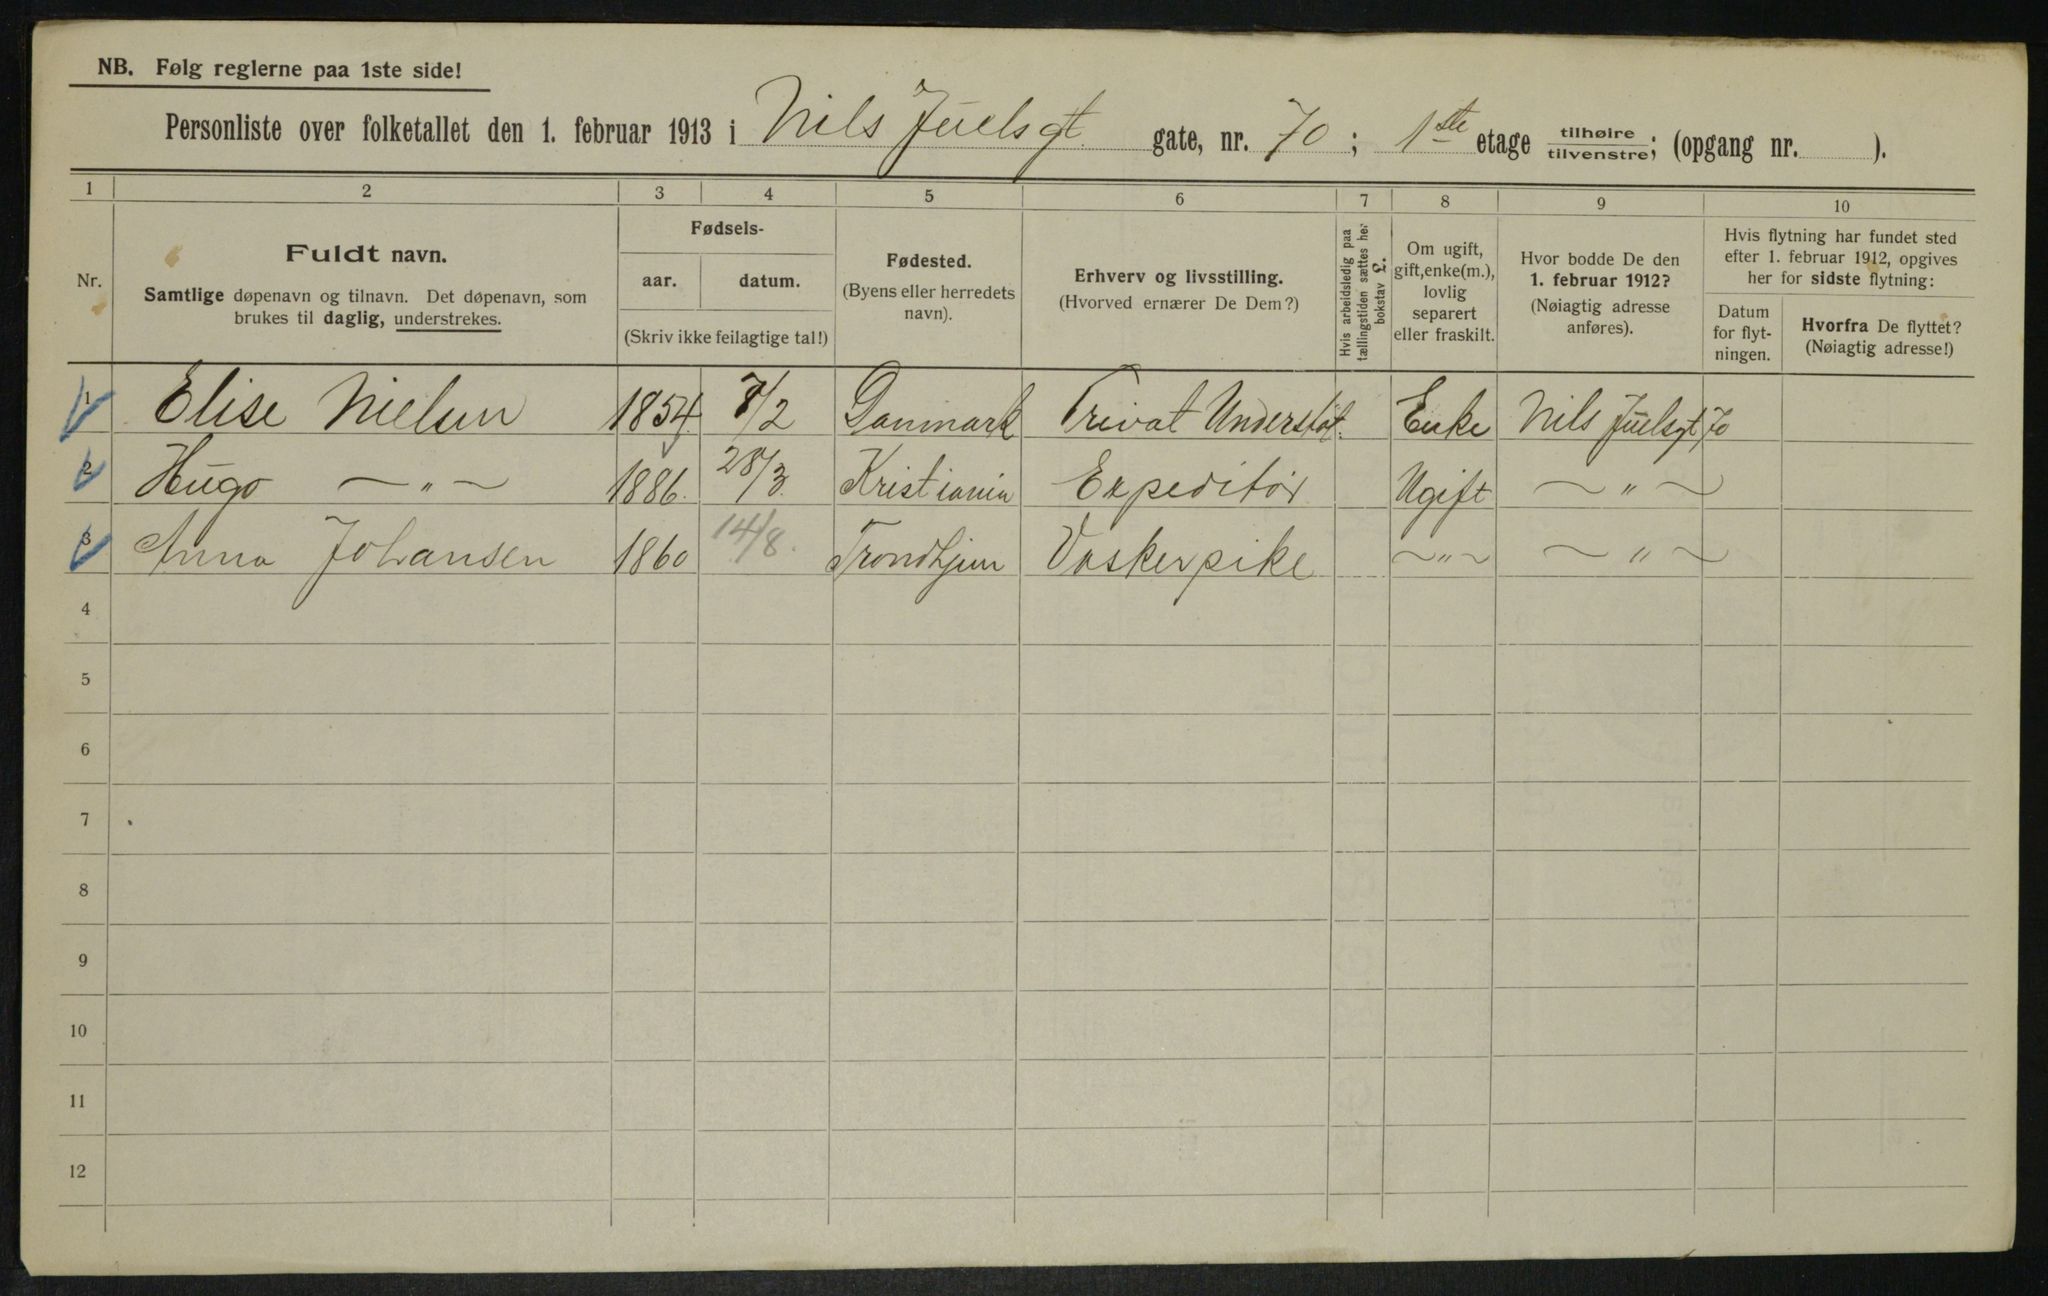 NB. Følg reglerne paa 1ste side!
Personliste over folketallet den 1. februar 1913 i Nils Juelsgt. gate, nr. 70; 1ste etage tilhøire/tilvenstre; (opgang nr. ).
1 2 3 4 5 6 7 8 9 10
Nr.
Fuldt navn.
Samtlige døpenavn og tilnavn. Det døpenavn, som
brukes til daglig, understrekes.
Fødsels-
aar. datum.
(Skriv ikke feilagtige tal!)
Fødested.
(Byens eller herredets
navn).
Erhverv og livsstilling.
(Hvorved ernærer De Dem?)
Hvis arbeidsledig paa
tællingstiden sættes her
bokstav L.
Om ugift,
gift, enke(m.),
lovlig
separert
eller fraskilt.
Hvor bodde De den
1. februar 1912?
(Nøiagtig adresse
anføres).
Hvis flytning har fundet sted
efter 1. februar 1912, opgives
her for sidste flytning:
Datum
for flyt-
ningen.
Hvorfra De flyttet?
(Nøiagtig adresse!)
1 Elise Nielsen 1854 /2 Danmark Privat Understøt. Enke Nils Juelsgt 70
2 Hugo — " — 1886. 28/3. Kristiania Expeditør Ugift — " —
3 Anna Johansen 1860 14/8. Trondhjem Vaskerpike — " — — " —
4
5
6
7
8
9
10
11
12